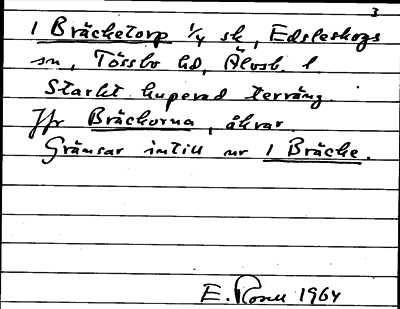 3
1 Bräcketorp 1/4 sk, Edsleskogs
sn, Tössbo hd, Älvsb. l.
Starkt kuperad terräng.
Jfr Bräckorna, åkrar.
Gränsar intill nr 1 Bräcke.
E. Rosell 1964